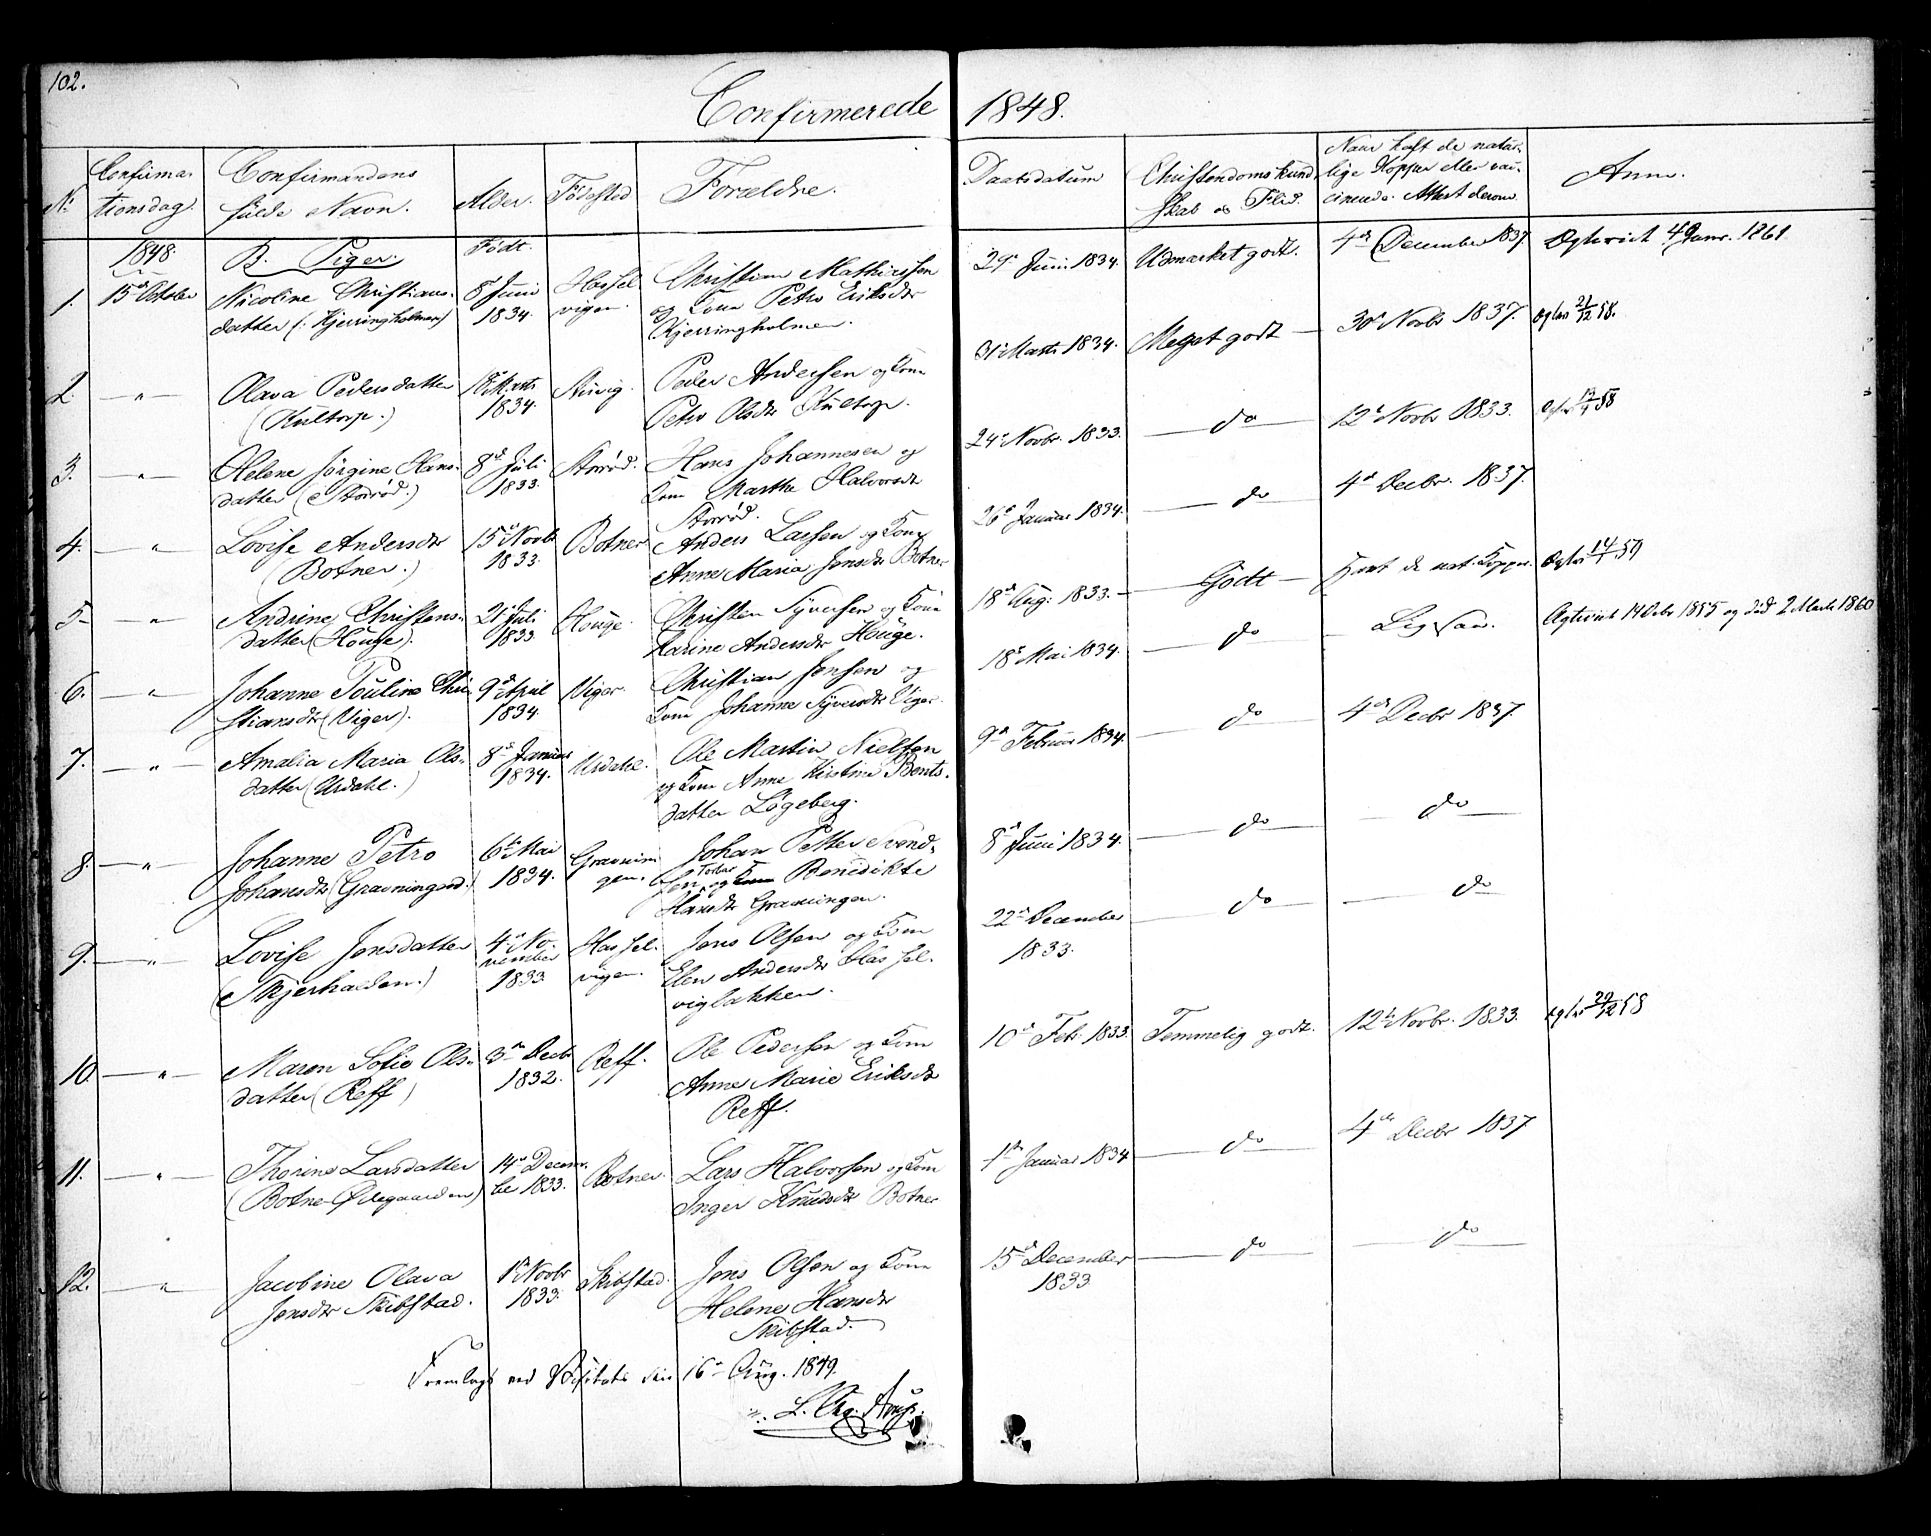 102.
Confirmerede 1848.
No Confirmationsdag. Confirmandens fulde Navn. Alder. Fødested Forældre. Daabsdatum Christendomskundskab og Flid. Naar havt de naturlige Kopper eller vaccinerede. Attest derom Anm.
1848. B. Piger. Født.
1. 15de October Nicoline Christiansdatter (: Kjerringholmen) 8de Juni 1834. Hasselvigen. Christian Mathiessen og Kone Petro Eriksdtr Kjerringholmen. 29de Juni 1834. Udmærket godt. 4de December 1837 Ægteviet 4 Janr. 1861
2. — " — Olava Pedersdatter (Kultorp.) 18de Marts 1834. Peder Andersen og Kone Petro Olsdtr Kultorp. 31te Marts 1834. Meget godt — 30te Novbr 1837. 21/12 58.
3. — " — Helene Jørgine Hansdatter (Storrød.) 8de Juli 1833. Storrød. Hans Johannesen og Kone Marthe Halvorsdtr Storrød. 24de Novbr. 1833. — do — 12te Novbr 1833. 58
4. — " — Lovise Andersdtr (Botner.) 15de Novbr 1833. Botner Anders Larsen og Kone Anne Maria Jensdtr Botner 26de Januar 1834. — do — 4de Decbr. 1837.
5 — " — Andrine Christensdatter (Houge). 21de Juli 1833 Houge. Christen Syversen og Kone Karine Andersdtr Houge. 18de Aug: 1833. — Godt — Havt de nat. Kopper. 14/1 59
6. — " — Johanne Pouline Christiansdtr (Viger). 9de April 1834. Viger. Christian Jensen og Kone Johanne Syversdtr Viger. 18de Mai 1834. — do — Ligesaa. Ægteviet 14 1855 og død 2 Marts 1860
7. — " — Amalia Maria Olsdatter (Urdahl.) 8de Januar 1834. Urdahl. Ole Martin Nielsen og Kone Anne Kirstine Bentsdatter Løgeberg. 9de Februar 1834. — do — 4de Decbr 1837.
8. — " — Johanne Petro Johansdtr (Gravningsrd.) 6te Mai 1834. Gravningen. Johan Petter Svendsen og Benedikte Hansdtr Gravningen. 8de Juni 1834. — do — — do —
9. — " — Lovise Jensdatter (Skjerhalden.) 4de November 1833 Hasselvigen. Jens Olsen og Kone Elen Andersdtr Hasselvigbakken. 22de December 1833. — do — — do —
10. — " — Maren Sofie Olsdatter (Reff) 3de Decbr 1832. Reff. Ole Pedersen og Kone Anne Marie Eriksdtr Reff. 10de Feb. 1833. Temmelig godt. 12te Novbr. 1833. 29/12 58
11. — " — Thorine Larsdatter (Botne-Ødegaarden) 14de December 1833. Botner. Lars Halvorsen og Kone Inger Knudsdtr Botner 1ste Januar 1834 — do — 4de Decbr 1837
12. — " — Jacobine Olava Jensdtr Skibstad. 1ste Novbr 1833. Skibstad. Jens Olsen og Kone Helene Hansdtr Skibstad. 15de December 1833. — do — — do —
Fremlagt ved Visitats den 16de Aug. 1849.